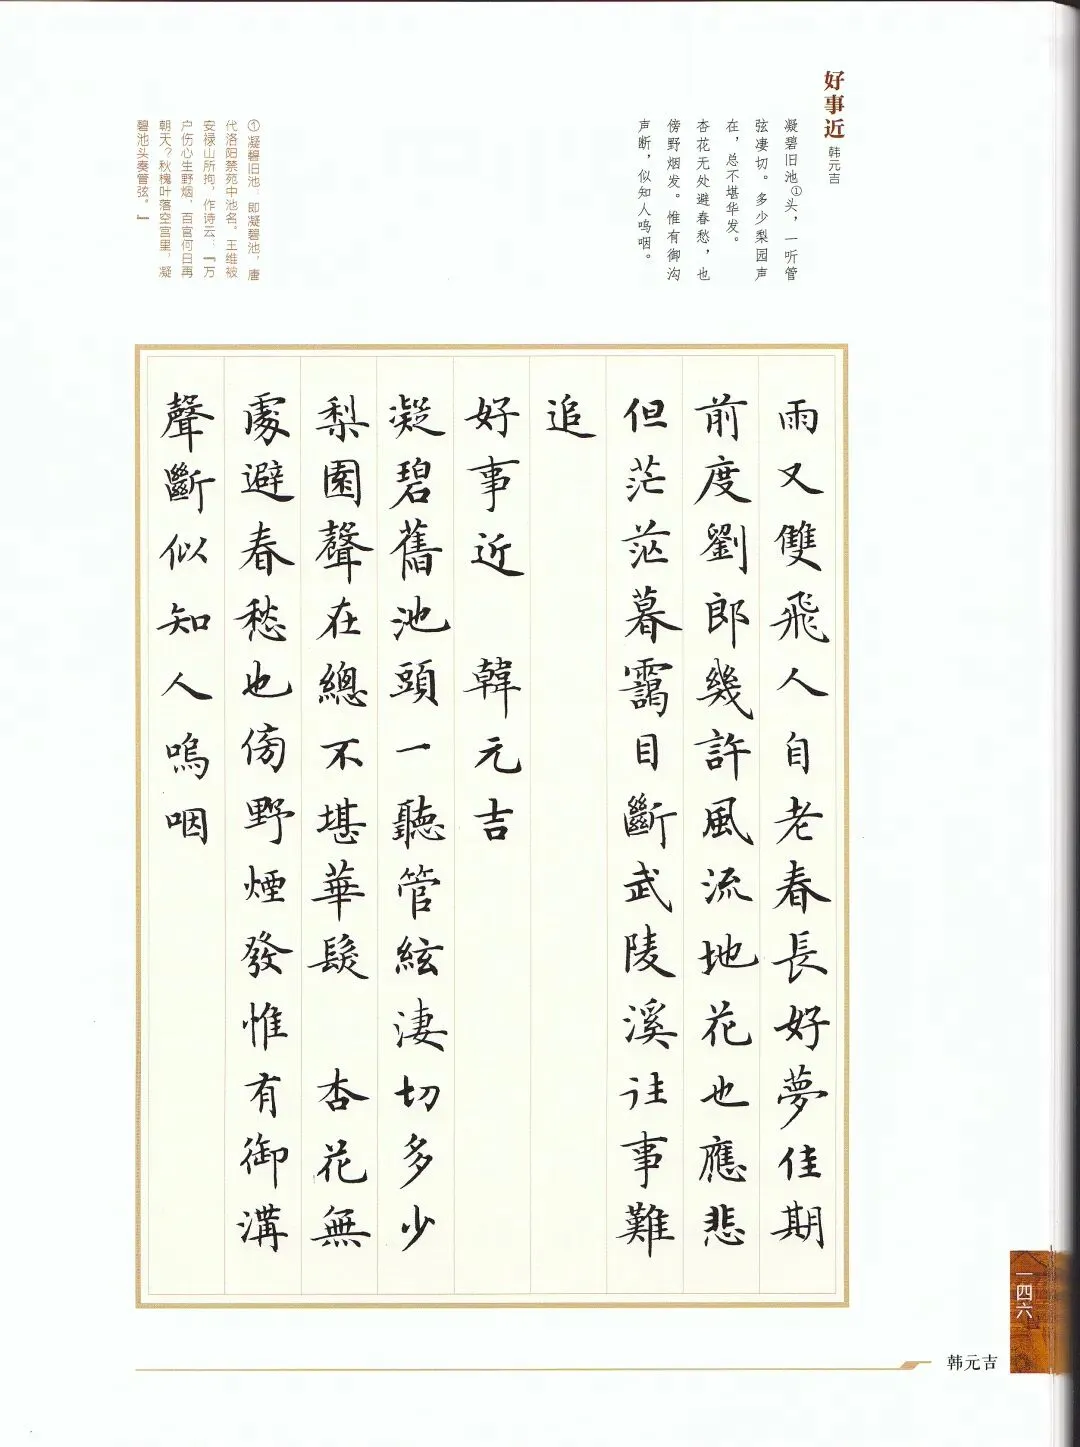 好事近 韩元吉
凝碧旧池①头，一听管
弦凄切。多少梨园声
在，总不堪华发。
杏花无处避春愁，也
傍野烟发。惟有御沟
声断，似知人呜咽。
①凝碧旧池：即凝碧池，唐
代洛阳禁苑中池名。王维被
安禄山所拘，作诗云：『万
户伤心生野烟，百官何日再
朝天？秋槐叶落空宫里，凝
碧池头奏管弦。』
雨又雙飛人自老春長好夢佳期
前度劉郎幾許風流地花也應悲
但茫茫暮靄目斷武陵溪往事難
追
好事近 韓元吉
凝碧舊池頭一聽管絃淒切多少
梨園聲在總不堪華髮 杏花無
處避春愁也傍野煙發惟有御溝
聲斷似知人嗚咽
一四六
韩元吉